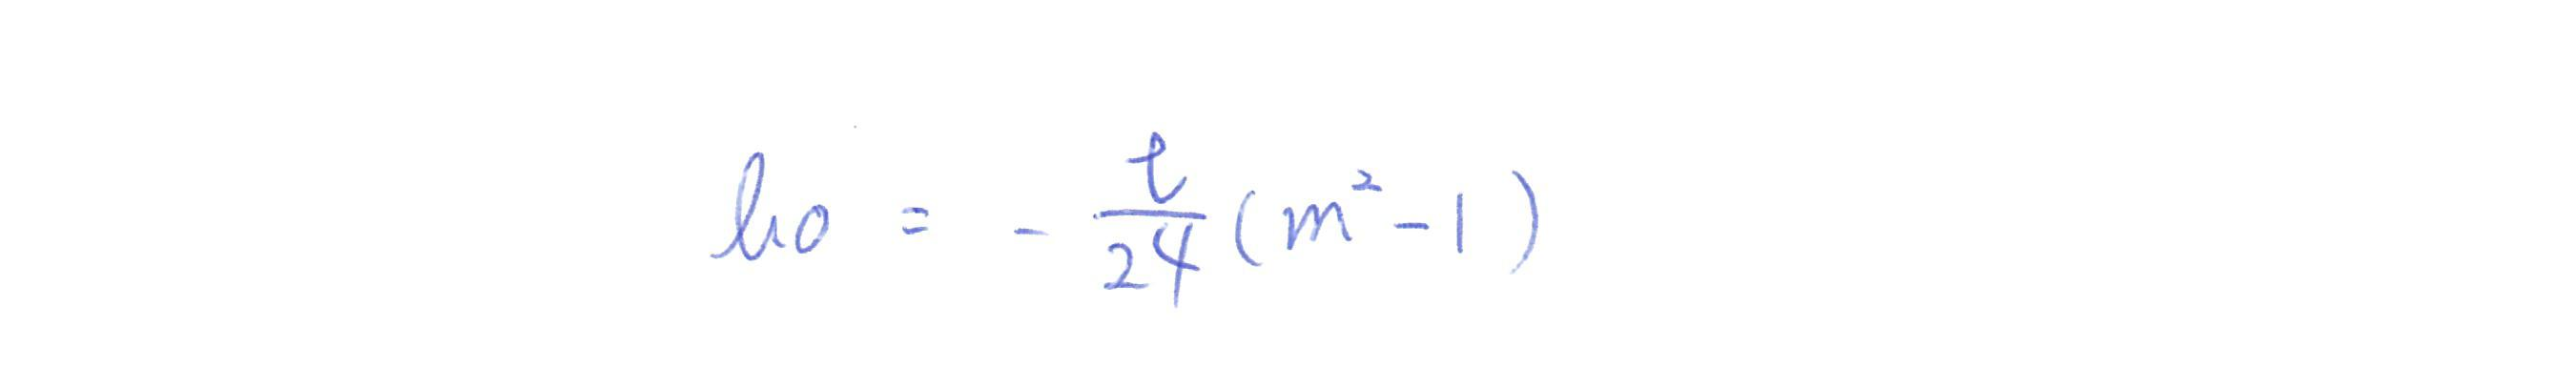 h_0 = -\frac{t}{24}(m^2-1)